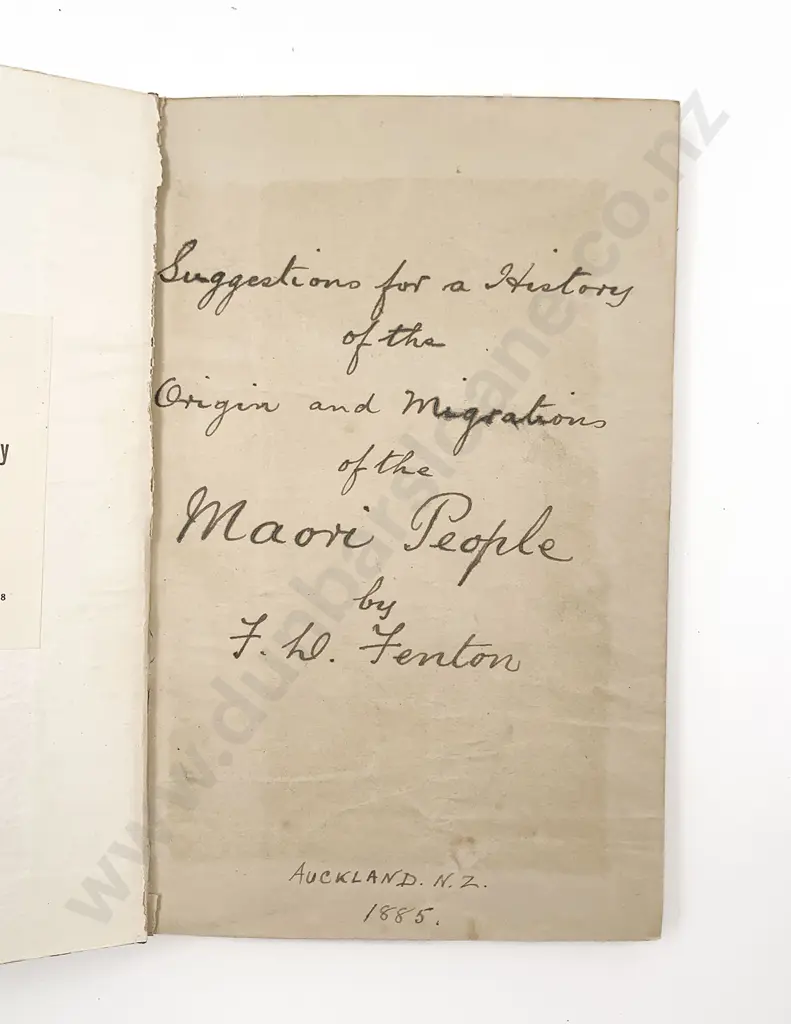 y
8
Suggestions for a History
of the
Origin and Migrations
of the
Maori People
by
F. D. Fenton
AUCKLAND. N.Z.
1885.
www.dunbarsloane.co.nz